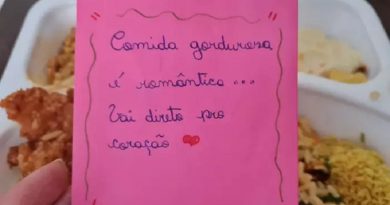 Comida gordurosa
é romântica...
Vai direto pro
coração ❤